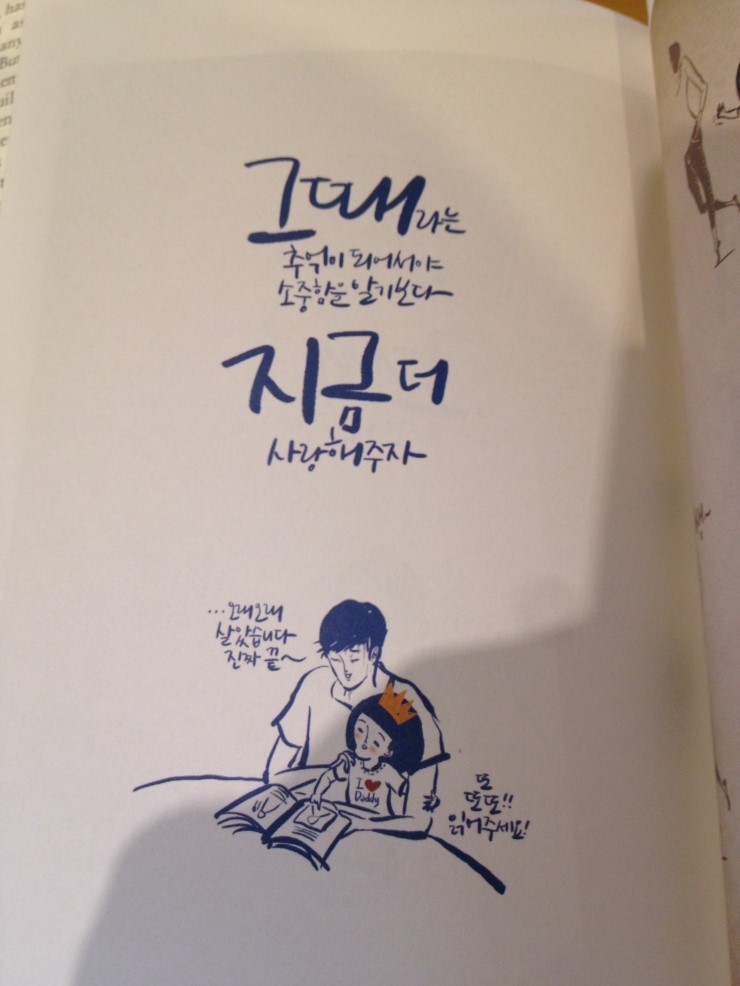 그때라는
추억이 되어서야
소중함을 알기보다
지금 더
사랑해주자
...오래오래
살았습니다
진짜 끝~
I ♥
Daddy
또
또또!!
읽어주세요!